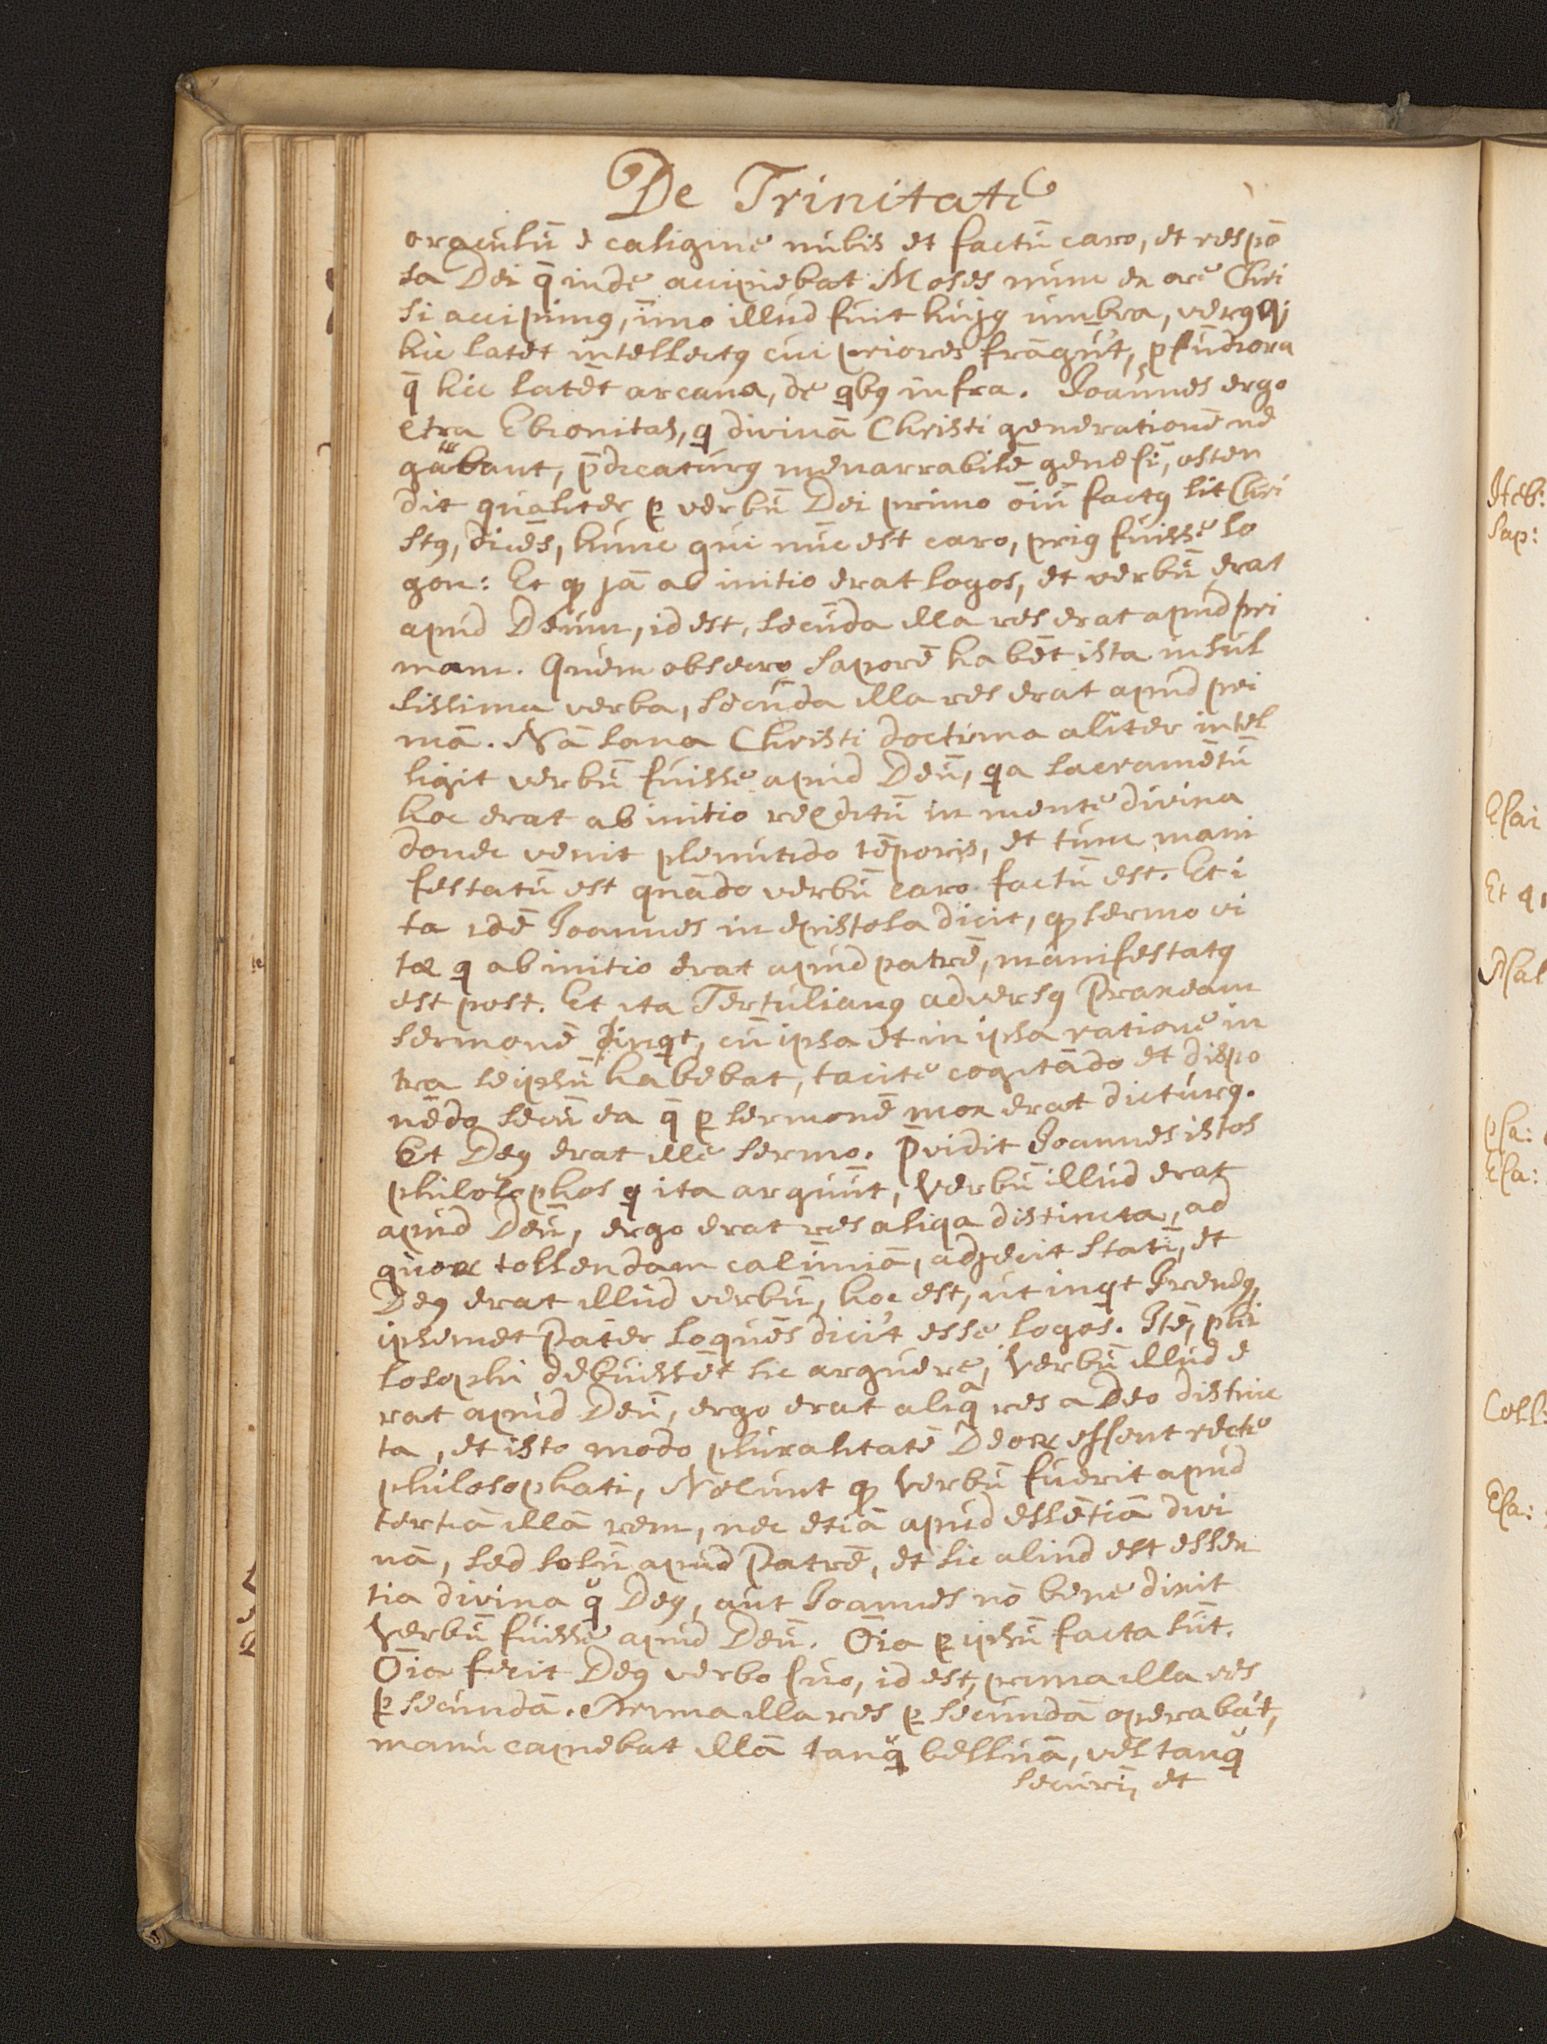 De Trinitate
oraculū e caligine nubis et factū caro, et respō
sa Dei q̄ inde accipiebat Moses nunc ex ore Chri
sti accipimꝰ, īmo illud fuit hujꝰ umbra, verꝰqꝫ
hic latet intellectꝰ cui priores frāgūt, ꝓfūdiora
q̄ hic latēt arcana, de qbꝰ infra. Joannes ergo
cōtra Ebionitas, q divinā Christi generationē ne
gabant, p̄dicaturꝰ inenarrabilē genesī, osten
dit qualiter ꝑ verbū Dei primo oīū factꝰ sit Chri
stꝰ, dicēs, hunc qui nūc est caro, priꝰ fuisse lo
gon: Et ꝙ jā ab initio erat logos, et verbū erat
apud Deum, id est, secūda illa res erat apud pri
mam. Quem obsecro saporē habēt ista insul
sissima verba, secūda illa res erat apud pri
mā. Nā sana Christi doctrina aliter intel
ligit verbū fuisse apud Deū, qa sacramētū
hoc erat ab initio recōditū in mente divina
donec venit plenitudo tēporis, et tunc mani
festatū est quādo verbū caro factū est. Et i
ta idē Joannes in epistola dicit, ꝙ sermo vi
tæ q ab initio erat apud patrē, manifestatꝰ
est post. Et ita Tertulianꝰ adversꝰ Praxeam
sermonē inqt, cū ipsa et in ipsa ratione in
tra seipsū habebat, tacite cogitādo et dispo
nēdo secū ea q̄ ꝑ sermonē mox erat dicturꝰ.
Et Deꝰ erat ille sermo. P̄vidit Joannes istos
philosophos q ita arguūt, Verbū illud erat
apud Deū, ergo erat res aliqa distincta, ad
quorꝝ tollendam calūniā, adjecit statī, et
Deꝰ erat illud verbū, hoc est, ut inqt Ireneꝰ,
ipsemet Pater loquēs dicit esse logos. Itē, phi
losophi debuissēt sic arguere, Verbū illud e
rat apud Deū, ergo erat aliq̄ res a Deo distinc
ta, et isto modo pluralitatē Deorꝝ essent recte
philosophati, Nolunt ꝙ Verbū fuerit apud
tertiā illā rem, nec etiā apud essētiā divi
nā, sed solū apud Patrē, et sic aliud est essen
tia divina q̄ Deꝰ, aut Joannes nō bene dixit
Verbū fuisse apud Deū. Oīa ꝑ ipsū facta sūt.
Oīa fecit Deꝰ verbo suo, id est, prima illa res
ꝑ secundā. Prima illa res ꝑ secundā operabat,
manu capiebat illā tanq̄ belluā, vel tanq̄
securī, et
Heb:
Sap:
Esai
Et q
Mal
psa:
Esa:
Coll:
Esa: